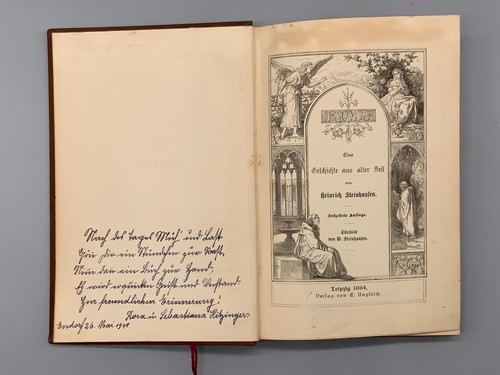 Nach des Tages Müh' und Last
Gön' dir ein Stündchen zur Rast,
Nim dan ein Buch zur Hand,
Es wird erquicken Geist und Verstand.
Zur freundlichen Erinnerung!
Rosa u. Sebastiana Hitzinger.
Endorf 26. Mai
IRMELA
Eine
Geschichte aus alter Zeit
von
Heinrich Steinhausen.
Sechzehnte Auflage.
Titelbild
von W. Steinhausen.
Leipzig 1894,
Verlag von E. Ungleich.